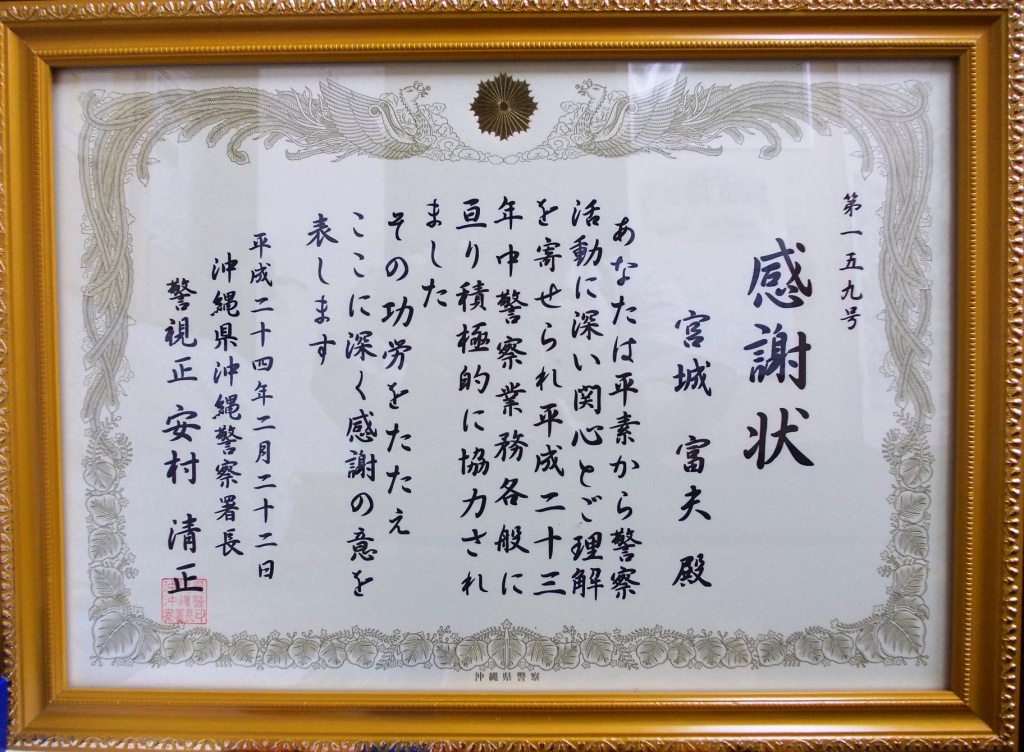 第一五九号
感謝状
宮城 富夫 殿
あなたは平素から警察
活動に深い関心とご理解
を寄せられ平成二十三
年中警察業務各般に
亘り積極的に協力され
ました
その功労をたたえ
ここに深く感謝の意を
表します
平成二十四年二月二十二日
沖縄県沖縄警察署長
警視正 安村 清正
沖縄県警察